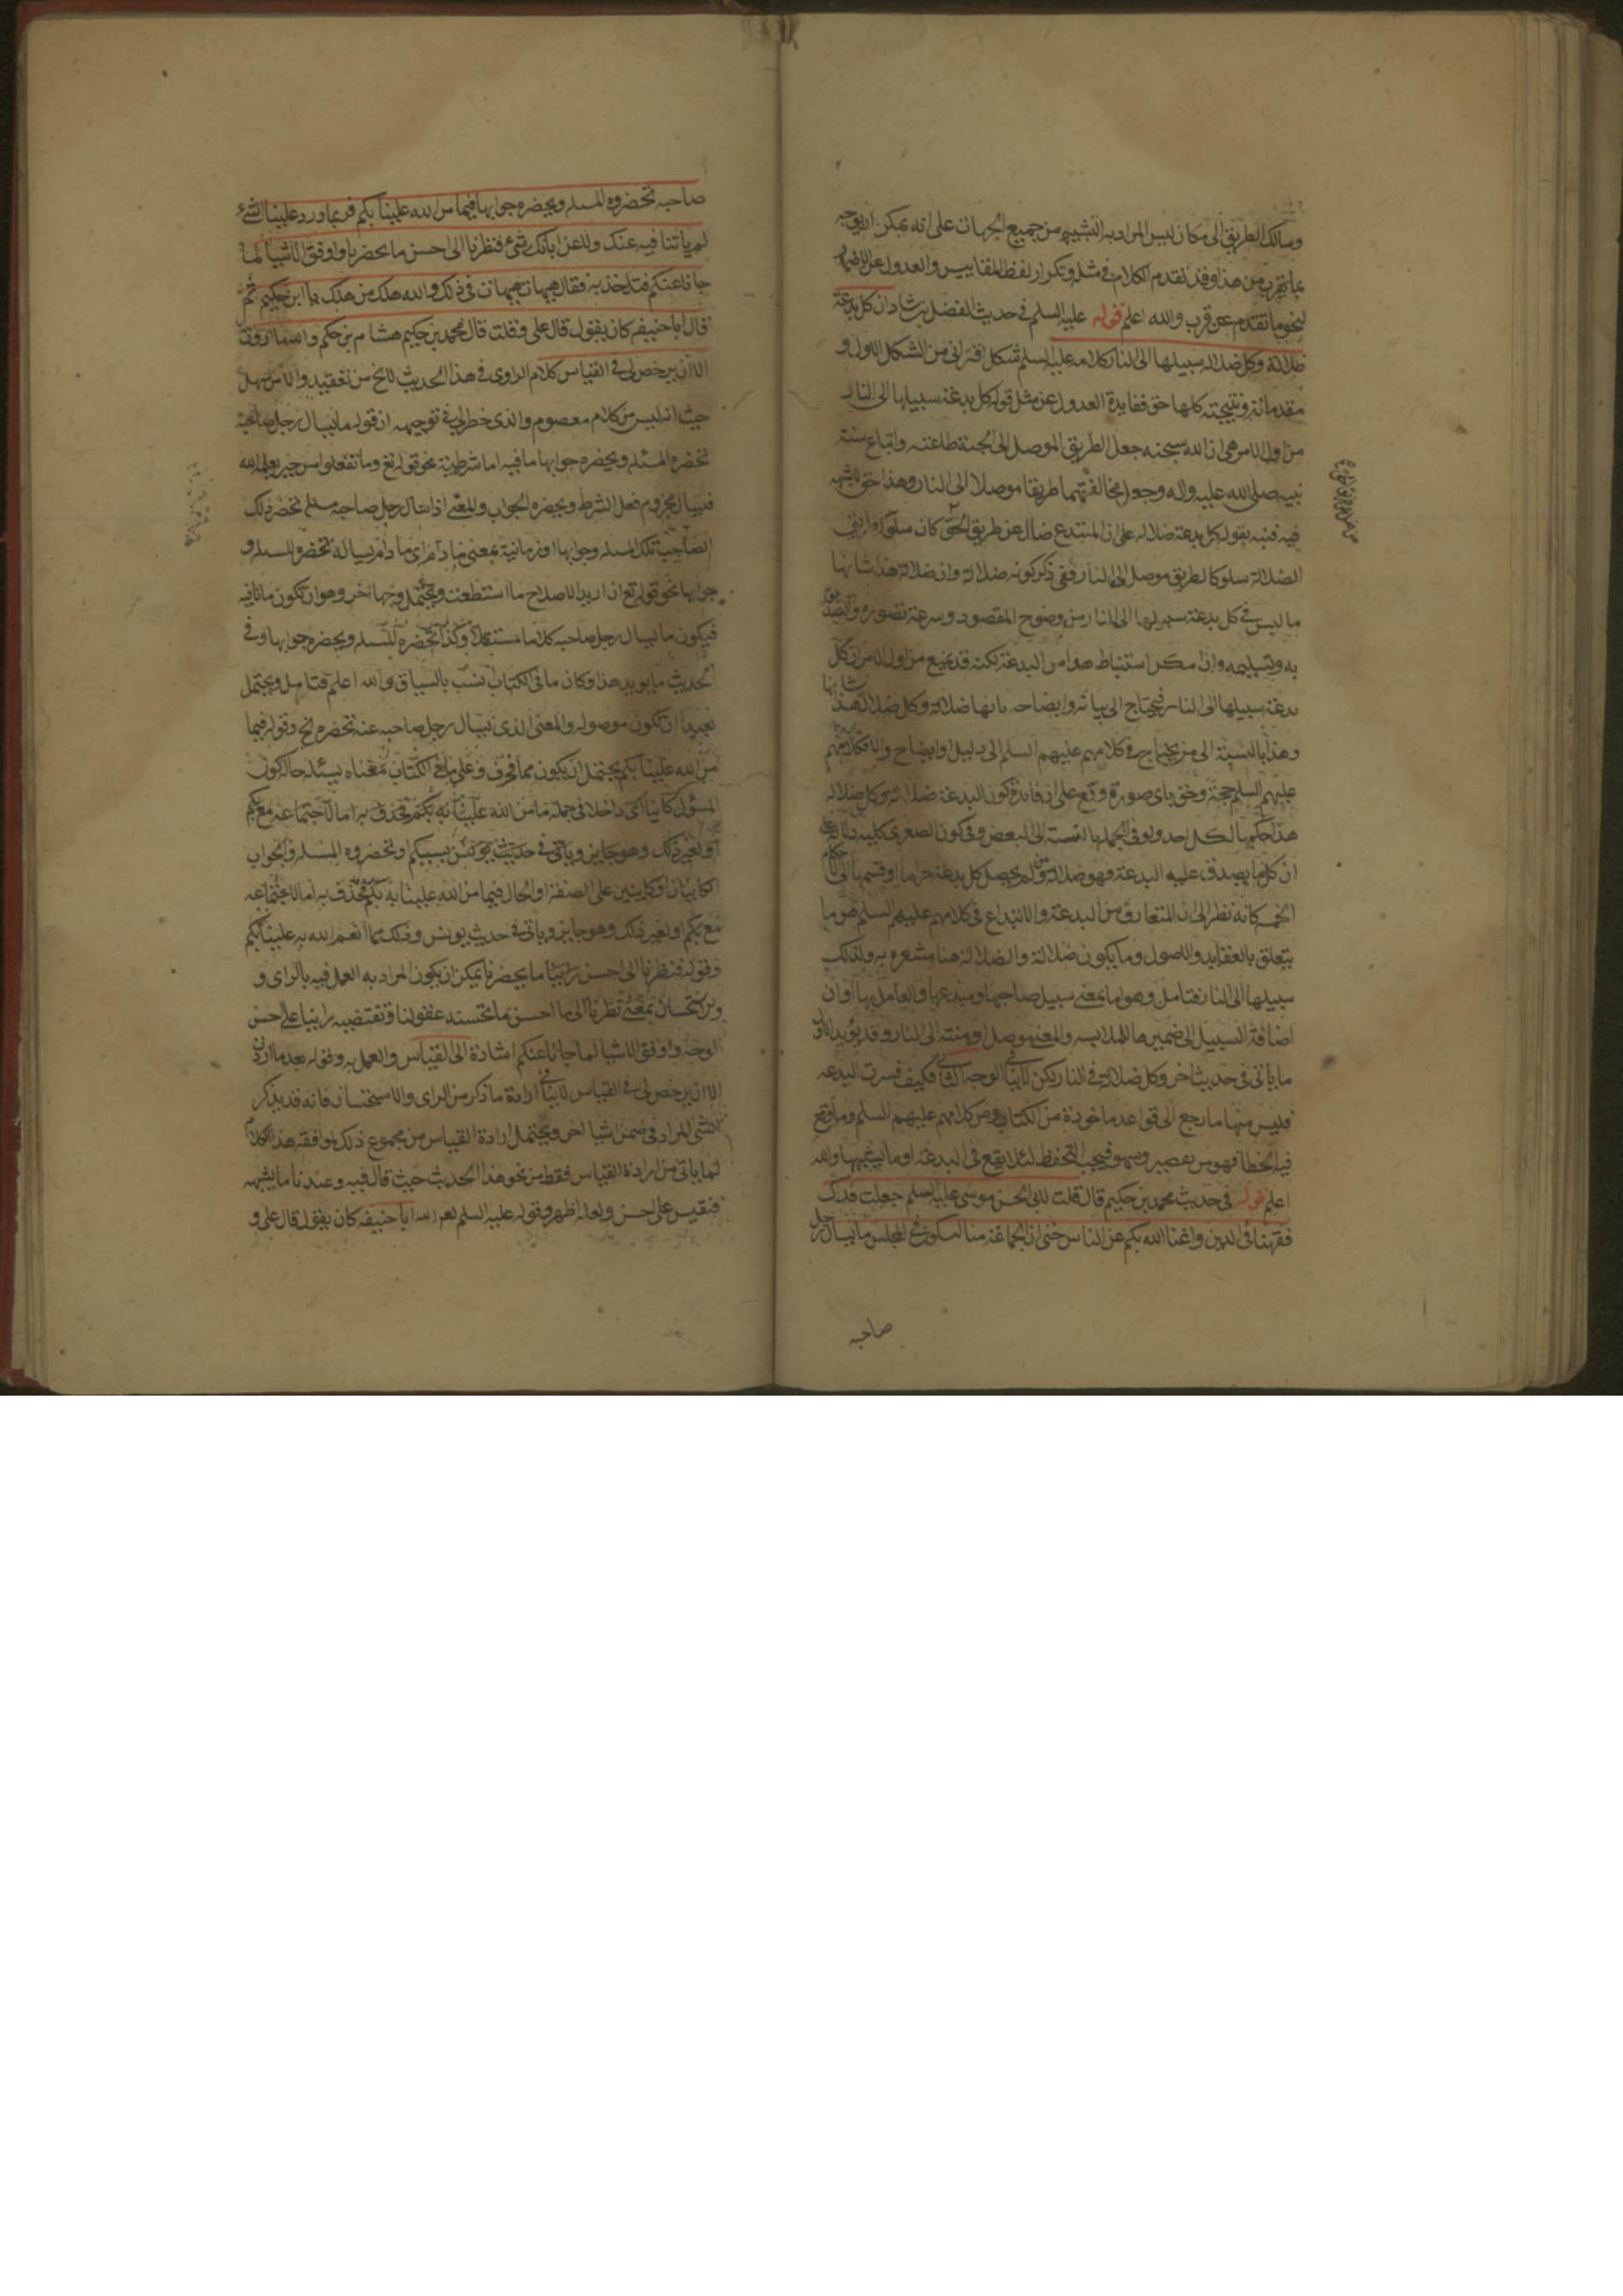 وسالك الطريق الى مكان ليس المراد به التشبيه من جميع الجهات على انه يمكن ان يوجه
بما يقرب من هذا وقد تقدم الكلام في مثله وتكرار لفظ المقاييس والعدول عن الاضمار
لنحو ما تقدم عن قرب والله اعلم قوله عليه السلم في حديث الفضل بن شاذان كل بدعة
ضلالة وكل ضلاله سبيلها الى النار كلامه عليه السلم شكل اقتراني من الشكل الاول و
مقدماته ونتيجته كلها حق ففايدة العدول عن مثل قوله كل بدعة سبيلها الى النار
من اول الامر هي ان الله سبحنه جعل الطريق الموصل الى الجنة طاعته واتباع سنة
نبيه صلى الله عليه واله وجعل مخالفتهما طريقا موصلا الى النار وهذا حق لا شبهه
فيه فنبه بقوله كل بدعة ضلاله على ان المبتدع ضال عن طريق الحق كان سلوك طريق
الضلالة سلوكا لطريق موصل الى النار ففي ذكر كونه ضلالة وان ضلالة هذا شانها
ما ليس في كل بدعة سبيلها الى النار من وضوح المقصود وسرعة تصوره والتصديق
به وتسليمه وان امكن استنباط هذا من البدعة لكنه قد يمنع من اول الامر ان كل
بدعة سبيلها الى النار فيحتاج الى بيانه وايضاحه بانها ضلالة وكل ضلالة هذا شانها
وهذا بالنسبة الى من يحتاج في كلامهم عليهم السلم الى دليل او ايضاح والا فكلامهم
عليهم السلم حجة وحق باى صورة وقع على ان فائدة كون البدعة ضلالة وكل ضلاله
هذا حكمها لكل احد ولو في الجملة بالنسبة الى البعض وفي كون الصغرى كليه دلالة على
ان كل ما يصدق عليه البدعة فهو ضلالة ولم يحصل كل بدعة حراما وقسمها الى الاحكام
الخمسه كانه نظر الى ان المتعارف من البدعة والابتداع في كلامهم عليهم السلم هو ما
يتعلق بالعقايد والاصول وما يكون ضلالة والضلالة هنا مشعره به ولذلك
سبيلها الى النار فتامل وهو اما بمعنى سبيل صاحبها ومبتدعها والعامل بها او ان
اضافة السبيل الى ضميرها للملابسه والمعنى موصل ومنته الى النار وقد يؤيد الاول
ما ياتي في حديث اخر وكل ضلالة في النار لكن لا ينافي الوجه الثاني فكيف فسرت البدعه
فليس منها ما رجع الى قواعد ماخوذة من الكتاب ومن كلامهم عليهم السلم وما وقع
فيه الخطا فهو من تقصير وسهو فيجب التحفظ لئلا يقع في البدعة او ما يشبهها والله
اعلم قوله في حديث محمد بن حكيم قال قلت لابي الحسن موسى عليه السلم جعلت فداك
فقهنا في الدين واغنانا الله بكم عن الناس حتى ان الجماعة منا لتكون في المجلس ما يسال رجل
صاحبه
صاحبه تحضره المسله ويحضره جوابها فيما من الله علينا بكم فربما ورد علينا الشئ
لم ياتنا فيه عنك ولا عن ابائك شئ فنظرنا الى احسن ما يحضرنا واوفق الاشيا لما
جانا عنكم فناخذ به فقال هيهات هيهات في ذلك والله هلك من هلك يا ابن حكيم ثم
قال ابا حنيفه كان يقول قال علي وقلت قال محمد بن حكيم لهشام بن حكم والله ما اردت
الا ان يرخص لي في القياس كلام الراوى في هذا الحديث لا يخ من تعقيد والامر سهل
حيث انه ليس من كلام معصوم والذى خطر لي في توجيهه ان قوله ما يسال رجل صاحبه
تحضره المسئله ويحضره جوابها ما فيه اما شرطية نحو قوله تع وما تفعلوا من خير يعلمه الله
فيسال مجزوم فعل الشرط ويحضره الجواب والمعنى اذا سال رجل صاحبه مسله تحضر ذلك
الصاحب تلك المسله وجوابها او زمانية بمعنى ما دام اى ما دام يساله تحضره المسله و
جوابها نحو قوله تع ان اريد الا صلاح ما استطعت ويحتمل وجها اخر وهو ان تكون ما نافيه
فيكون ما يسال رجل صاحبه كلاما مستقلا وكذا تحضره المسله ويحضره جوابها وفي
الحديث ما يويد هذا وكان ما في الكتاب نسب بالسياق والله اعلم فتامل ويحتمل
بعيدا ان تكون موصوله والمعنى الذى يسال رجل صاحبه عنه تحضره الخ وقوله فيما
من الله علينا بكم يحتمل ان يكون مما فحرف وعلى ما في الكتاب معناه يسئله حال كون
المسؤل كانيا اى داخلا في جملة ما من الله علينا به بكم فحذف به اما لاجتماعه مع بكم
او لغير ذلك وهو جايز وياتي في حديث يونس بسببكم او تحضره المسله والجواب
كايبان او كاينين على الصفة او الحال فيما من الله علينا به بكم فحذف به اما لاجتماعه
مع بكم او لغير ذلك وهو جايز وياتي في حديث يونس وذلك مما انعم الله به علينا بكم
وقوله فنظرنا الى احسن راينا ما يحضرنا يمكن ان يكون المراد به العمل فيه بالراى و
الاستحسان بمعنى نظرنا الى ما احسن ما تحتسنه عقولنا وتقتضيه راينا على احسن
الوجه واوفق الاشيا لما جائنا عنكم اشارة الى القياس والعمل به وقوله بعد ما اردت
الا ان يرخص لي في القياس لا ينافي ارادة ما ذكر من الراى والاستحسان فانه قد يذكر
الشئ المراد في ضمن اشيا اخر ويحتمل ارادة القياس من مجموع ذلك لموافقه هذا الكلام
لما ياتي من ارادة القياس فقط من نحو هذا الحديث حيث قال فيه وعندنا ما يشبهه
فنقيس على احسنه ولعله اظهر وقوله عليه السلم لعن الله ابا حنيفه كان يقول قال علي و